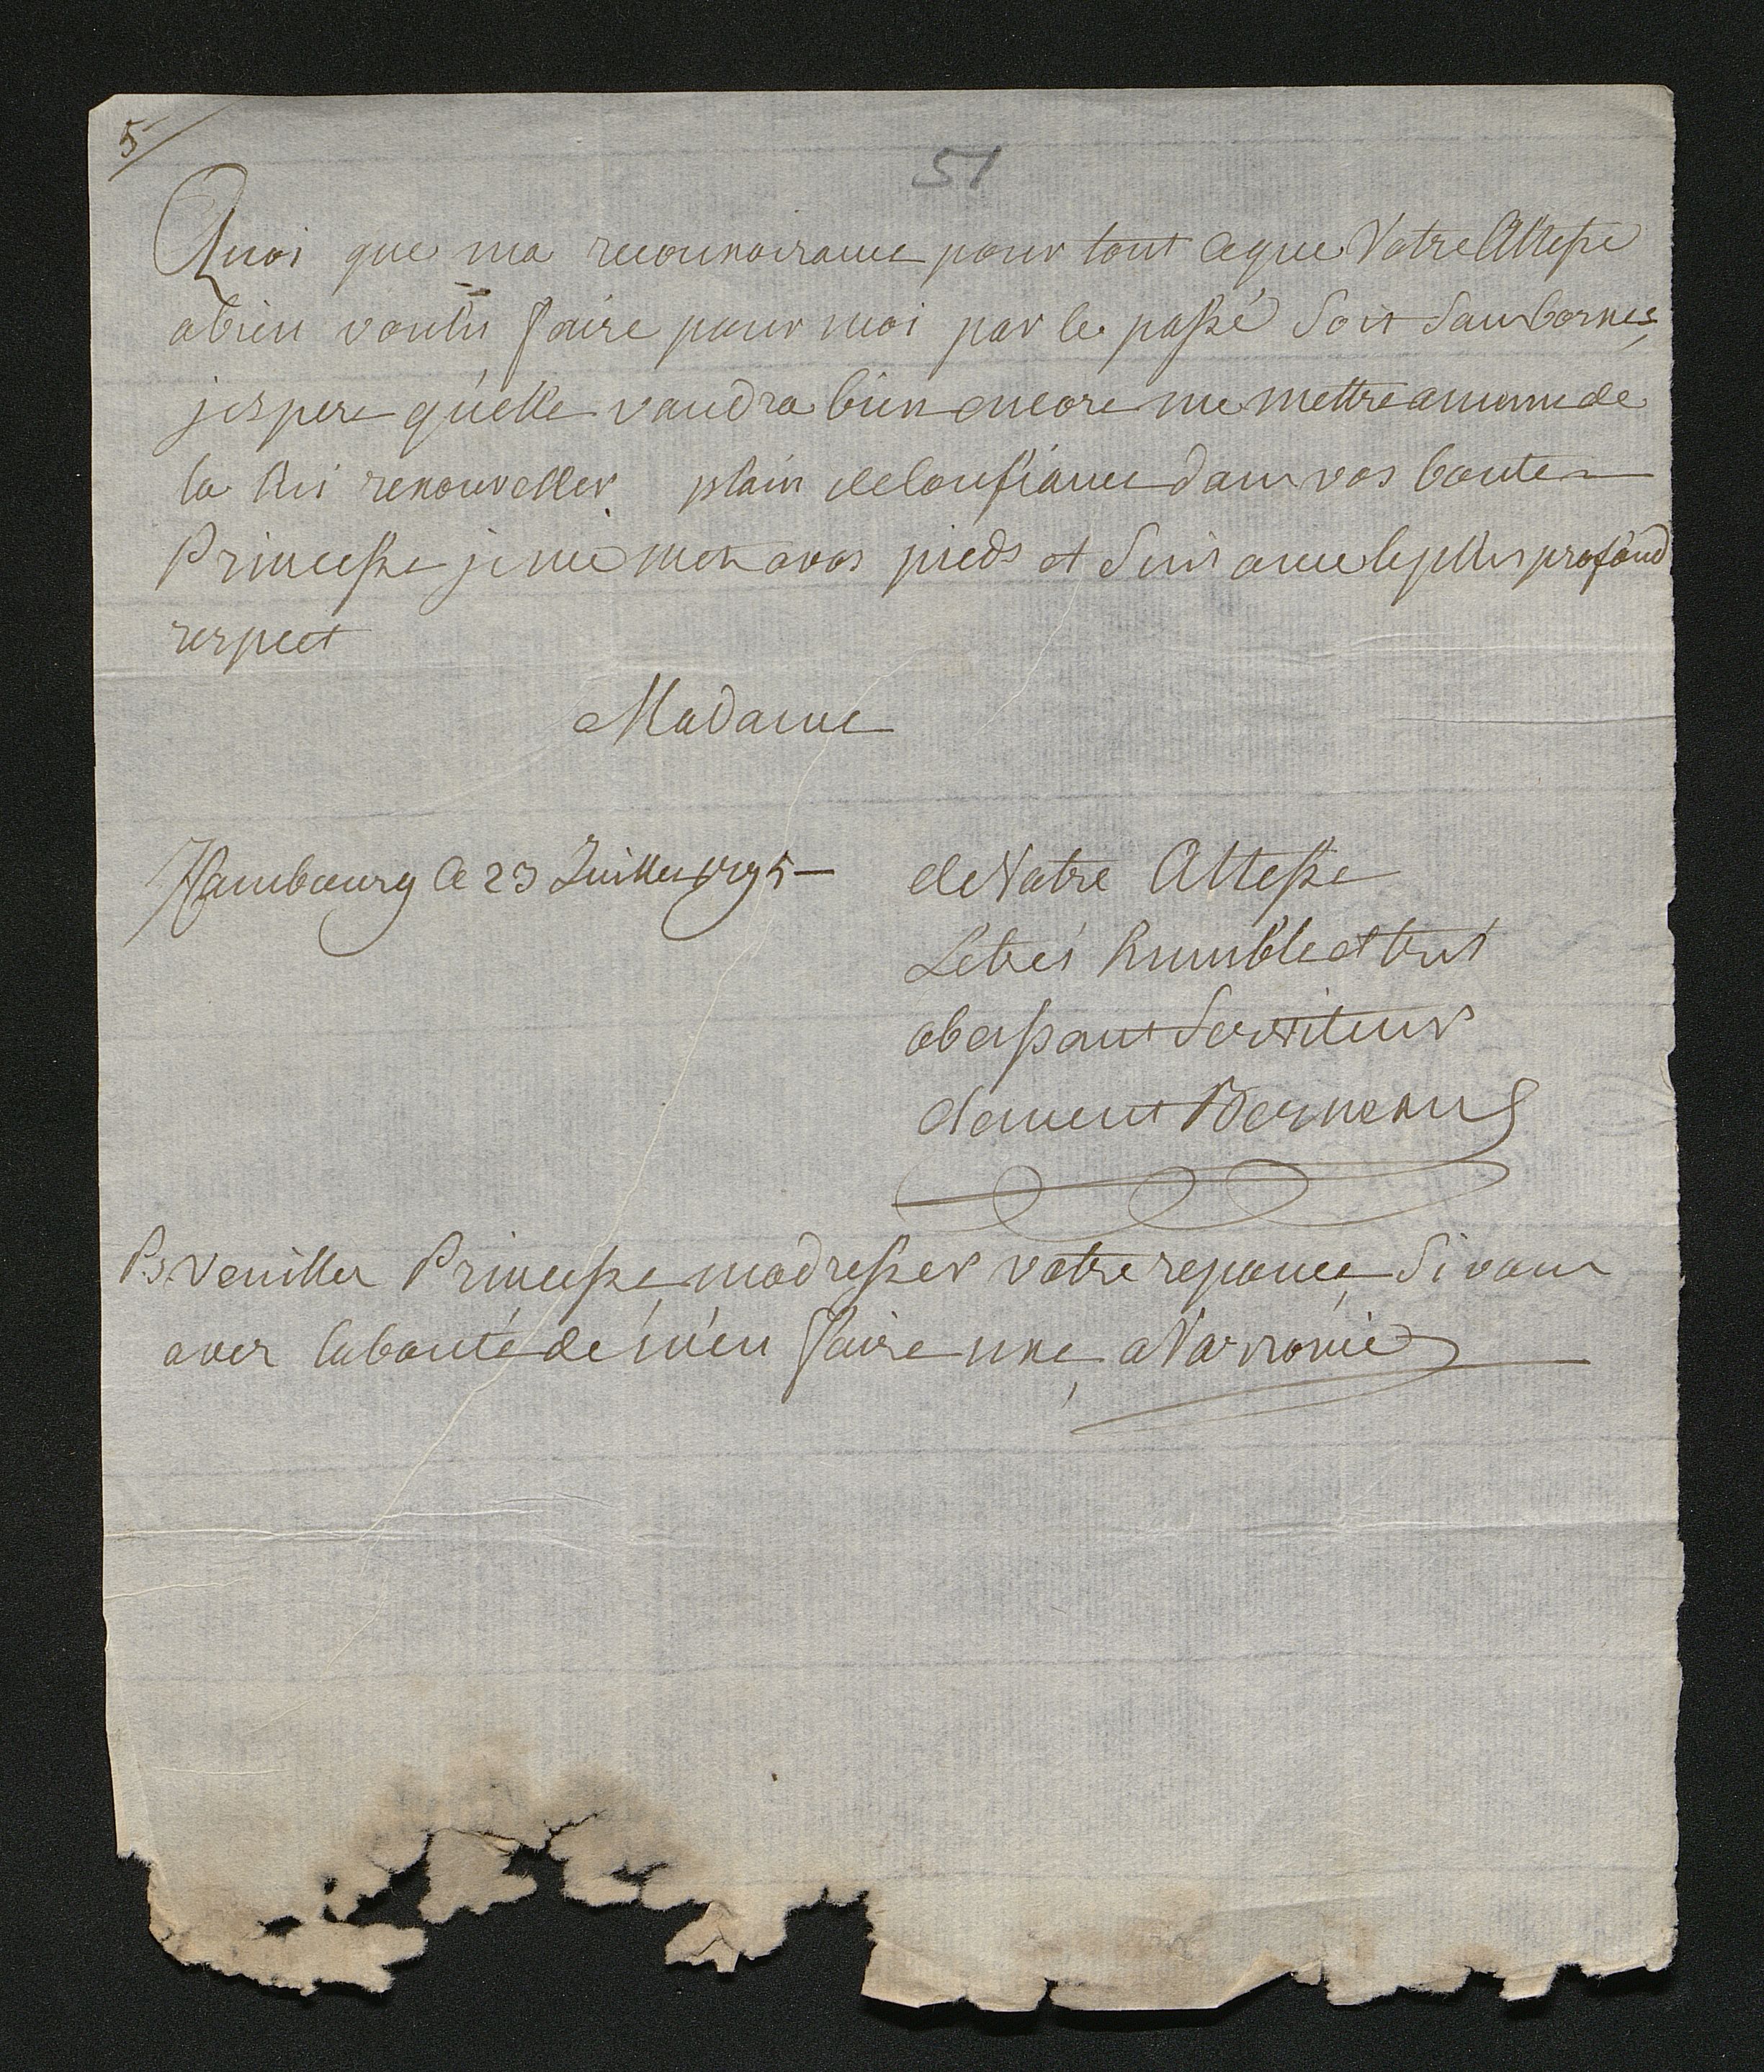 5
51
Quoi que ma reconnoirance pour tout ceque Votre Altesse
abien voulu faire pour moi par le passé Soit Sans bornes,
jespere qu'elle voudra bien encore me mettre amême de
la lui renouveller. plain deconfiance dans vos bontes
Princesse je me mets avos pieds et Suis avec leplus profond
respect
Madame
Hambourg le 23 Juillet 1795 —
de Votre Altesse
Letres humble et tres
obeissant Serviteur
Clement Bernaux
Ps. Veuillez Princesse madresser votre reponce, Si vous
avez labonté de m'en faire une, a Varsovie